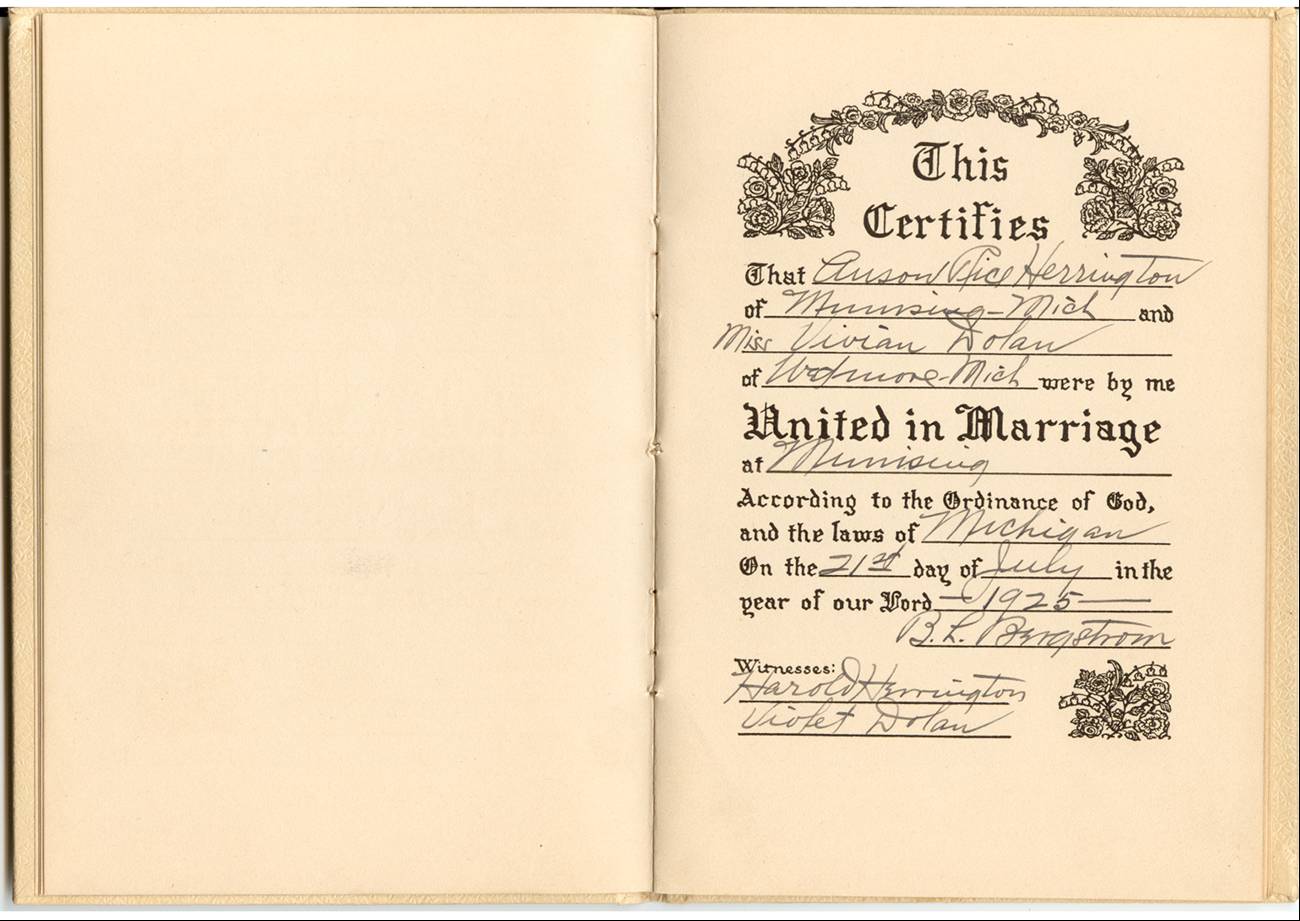 This
Certifies
That Anson Rice Herrington
of Munising-Mich and
Miss Vivian Dolan
of Wetmore-Mich were by me
United in Marriage
at Munising
According to the Ordinance of God,
and the laws of Michigan
On the 21st day of July in the
year of our Lord — 1925 —
B. L. Bergstrom
Witnesses:
Harold Herrington
Violet Dolan